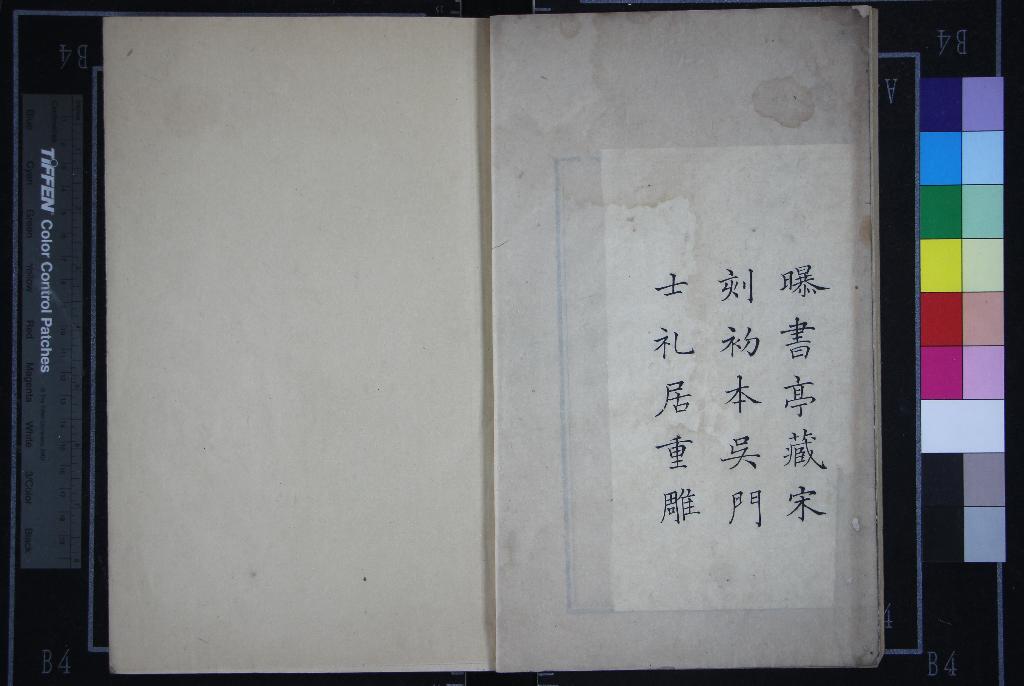 曝書亭藏宋
刻初本吳門
士礼居重雕
B4
B4
B4
B4
A
TIFFEN Color Control Patches
Blue
Cyan
Green
Yellow
Red
Magenta
White
3/Color
Black